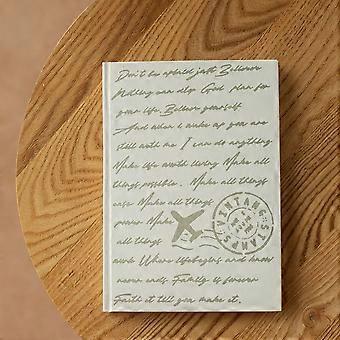 Don't be afraid just Believe
Nothing can stop God plan for
your life. Believe yourself
And when i wake up you are
still with me I can do anything
Make life worth living Make all
things possible. Make all things
case Make all things
prower Make
all things
work Where lifebegins and know
never ends Family is forever
Faith it till you make it.
VINTANG STAMPS